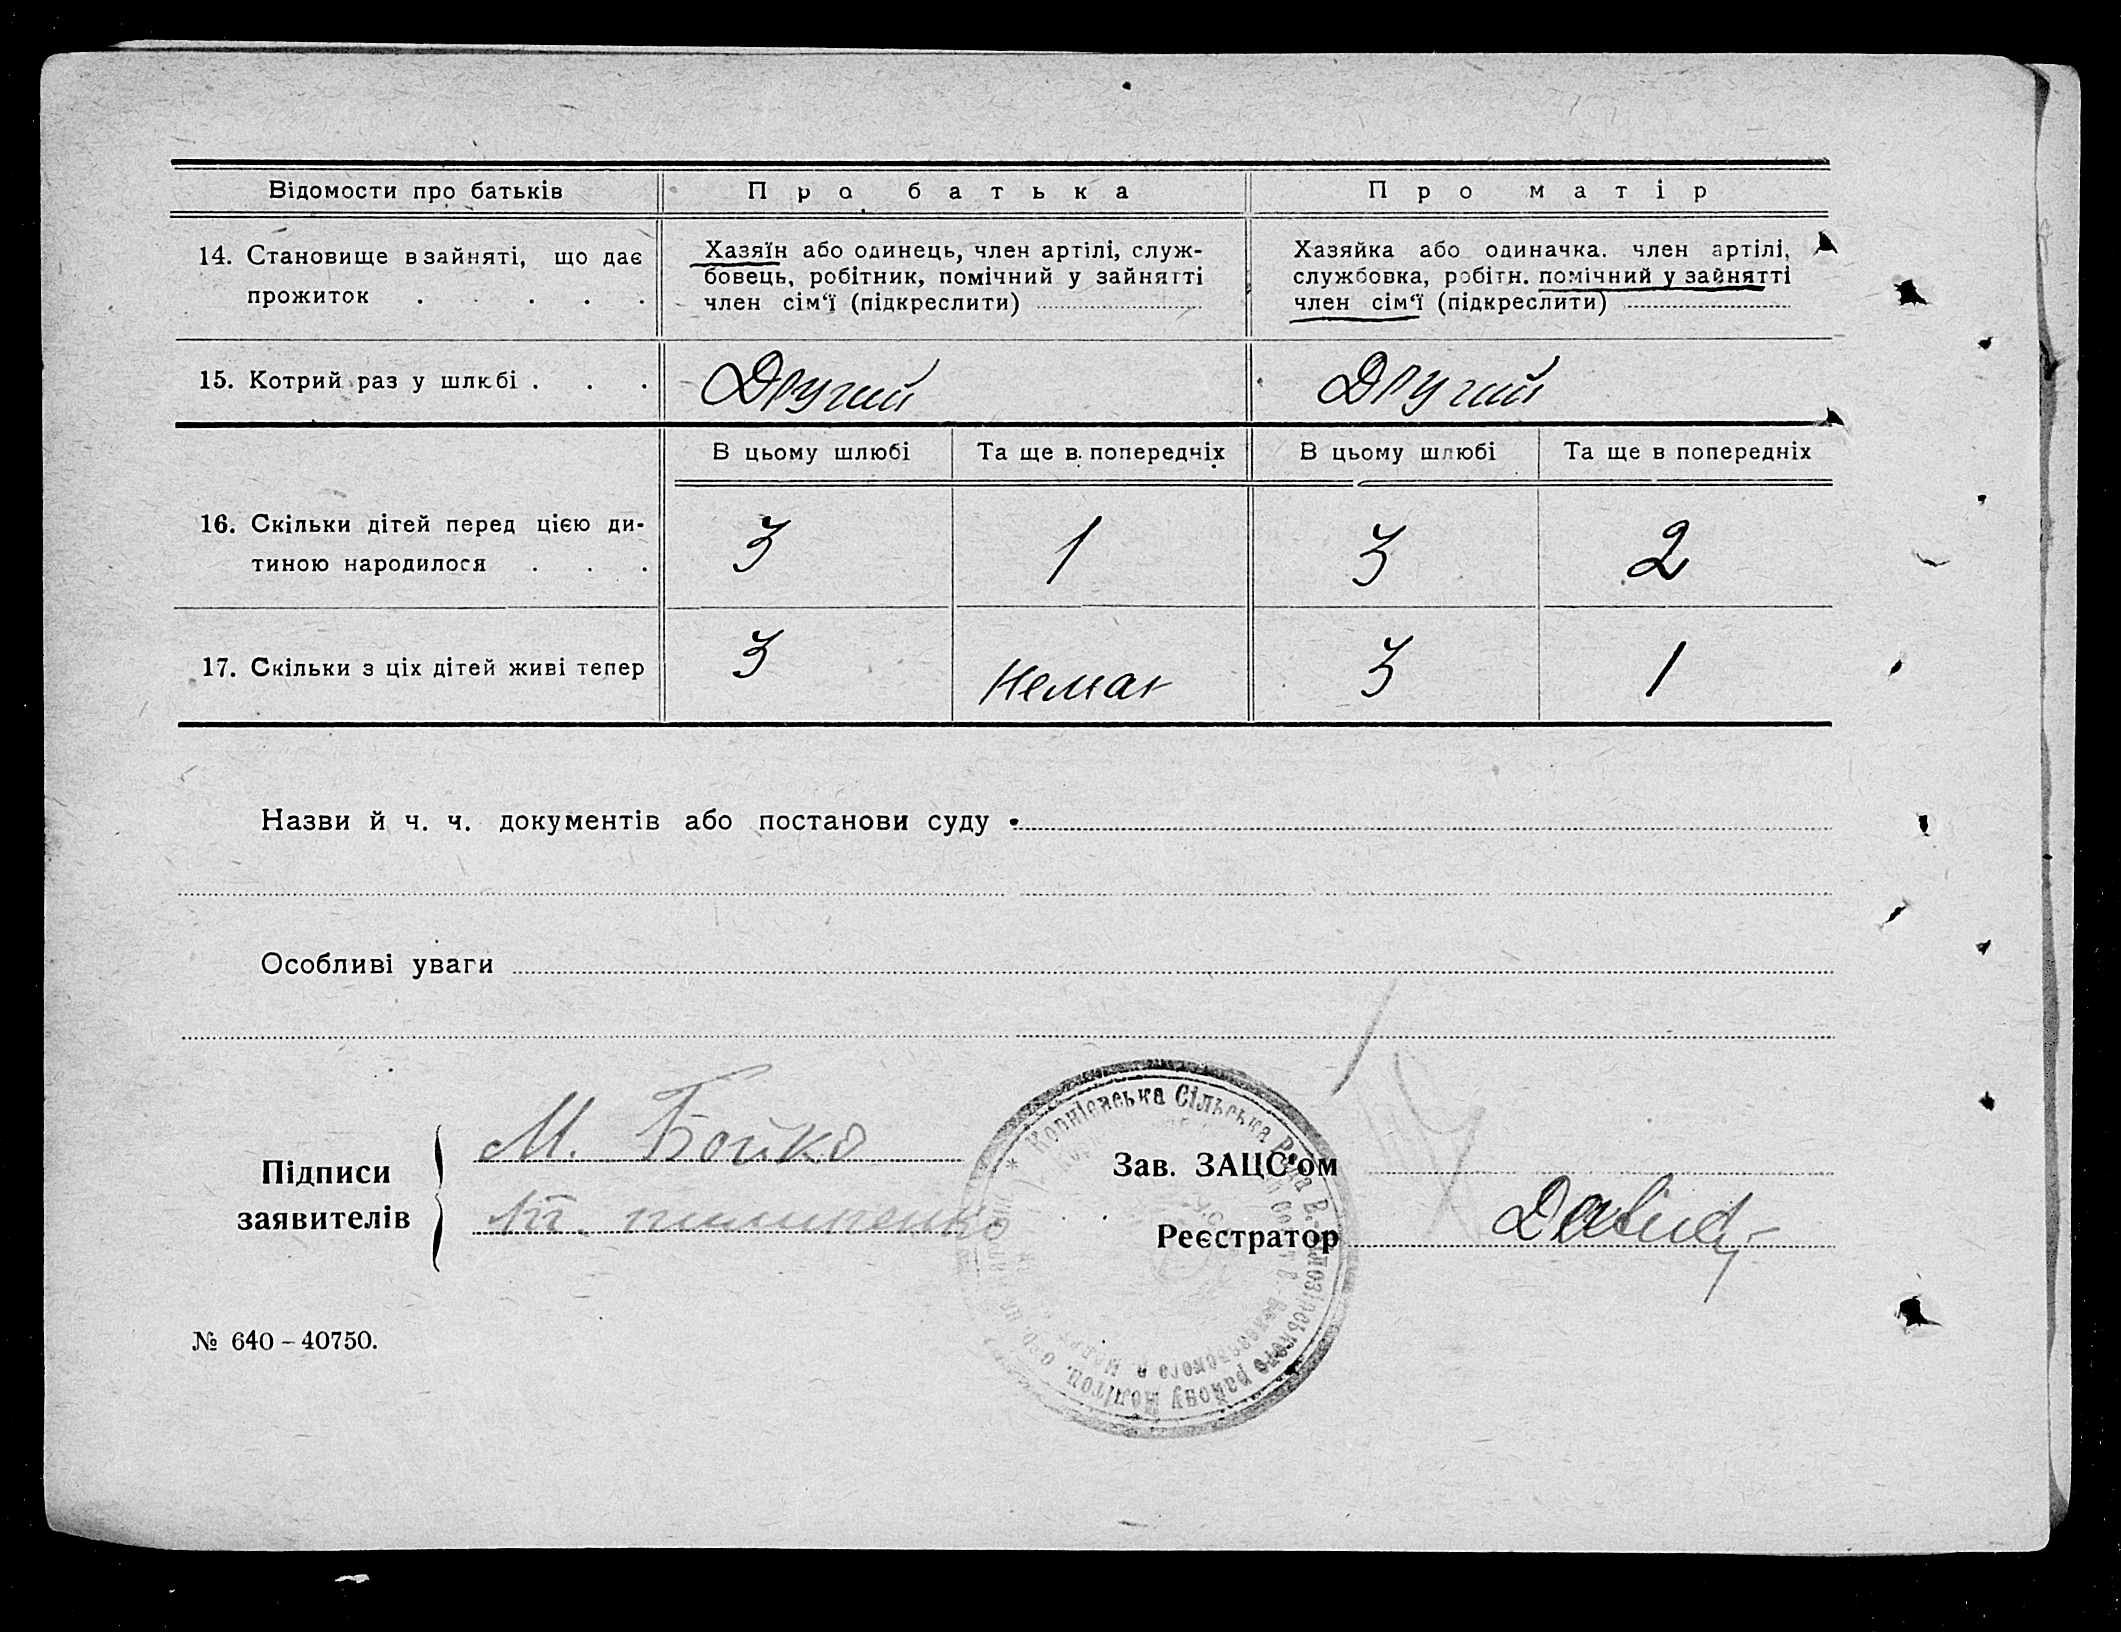 Відомости про батьків Про батька Про матір
14. Становище в зайняті, що дає прожиток . . . .
Хазяїн або одинець, член артілі, служ-
бовець, робітник, помічний у зайнятті
член сім'ї (підкреслити)
Хазяйка або одиначка. член артілі,
службовка, робітн. помічний у зайнятті
член сім'ї (підкреслити)
15. Котрий раз у шлюбі . . . Другий Другий
В цьому шлюбі Та ще в попередніх В цьому шлюбі Та ще в попередніх
16. Скільки дітей перед цією ди-
тиною народилося . . . 3 1 3 2
17. Скільки з ціх дітей живі тепер 3 Немає 3 1
Назви й ч. ч. документів або постанови суду
Особливі уваги
Підписи
заявителів
М. Бойко
Зав. ЗАЦС'ом
Реєстратор
Сільська Рада
району
№ 640-40750.